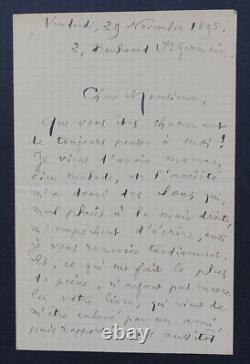 Vendredi, 29 Novembre 1895.
2, Boulevard St Germain.
Cher Monsieur,
Que vous êtes charmant
de toujours penser à moi !
Je viens d'avoir maman
bien malade, et l'anxiété
m'a donné des clous qui,
mal placés à la main droite,
m'empêchent d'écrire, aussi
je vous remercie tardivement.
Et, ce qui me fait le plus
de peine, n'ayant pas encore
lu votre livre, qui vient de
m'être enlevé par un ami,
puis rapporté aussitôt